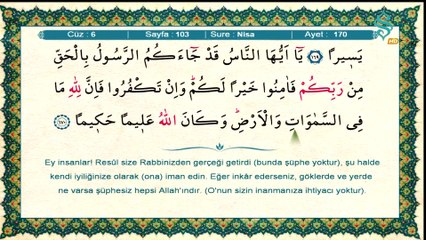 Cüz : 6 Sayfa : 103 Sure : Nisa Ayet : 170
HD
يَسٖيرًا ﴿١٦٩﴾ يَٓا اَيُّهَا النَّاسُ قَدْ جَٓاءَكُمُ الرَّسُولُ بِالْحَقِّ
مِنْ رَبِّكُمْ فَاٰمِنُوا خَيْرًا لَكُمْ وَاِنْ تَكْفُرُوا فَاِنَّ لِلّٰهِ مَا
فِى السَّمٰوَاتِ وَالْاَرْضِ وَكَانَ اللّٰهُ عَلٖيمًا حَكٖيمًا ﴿١٧٠﴾
Ey insanlar! Resûl size Rabbinizden gerçeği getirdi (bunda şüphe yoktur), şu halde
kendi iyiliğinize olarak (ona) iman edin. Eğer inkâr ederseniz, göklerde ve yerde
ne varsa şüphesiz hepsi Allah'ındır. (O'nun sizin inanmanıza ihtiyacı yoktur).